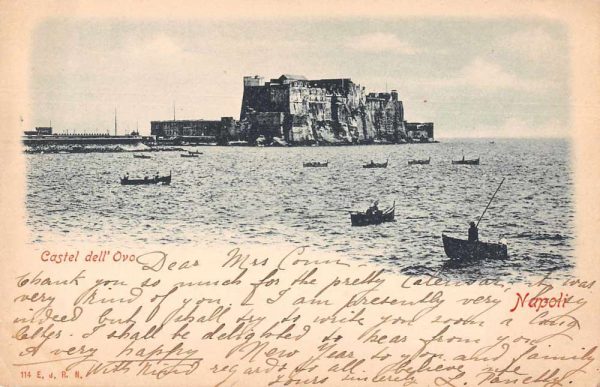 Napoli
Castel dell' Ovo
Dear Mrs
thank you so much for the pretty Calendar, it was
very kind of you. I am presently very
indeed but I shall try to write you soon a long
letter. I shall be delighted to hear from you
A very happy New Year to you and family
With kind regards to all, believe me
Yours sincerely
Napoli
114 E. J. R. N.